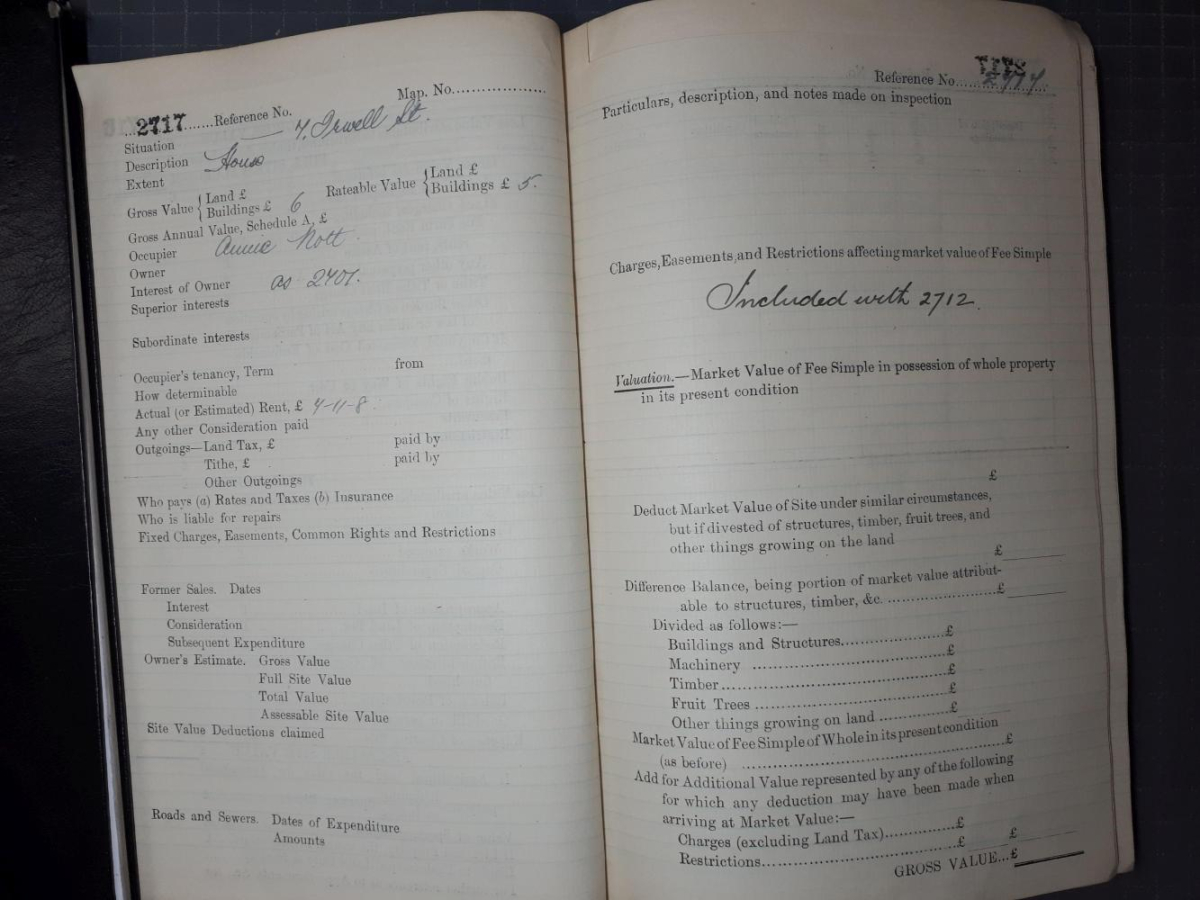 2717.......Reference No.
Map. No...................
Situation 7, Irwell St.
Description House
Extent
Gross Value { Land £
Buildings £ 6
Rateable Value { Land £
Buildings £ 5.
Gross Annual Value, Schedule A, £
Occupier Annie Nott
Owner
Interest of Owner as 2701.
Superior interests
Subordinate interests
Occupier's tenancy, Term from
How determinable
Actual (or Estimated) Rent, £ 4-11-8
Any other Consideration paid
Outgoings—Land Tax, £ paid by
Tithe, £ paid by
Other Outgoings
Who pays (a) Rates and Taxes (b) Insurance
Who is liable for repairs
Fixed Charges, Easements, Common Rights and Restrictions
Former Sales. Dates
Interest
Consideration
Subsequent Expenditure
Owner's Estimate. Gross Value
Full Site Value
Total Value
Assessable Site Value
Site Value Deductions claimed
Roads and Sewers. Dates of Expenditure
Amounts
Reference No.
Particulars, description, and notes made on inspection
Charges, Easements, and Restrictions affecting market value of Fee Simple
Included with 2712.
Valuation.—Market Value of Fee Simple in possession of whole property
in its present condition
£
Deduct Market Value of Site under similar circumstances,
but if divested of structures, timber, fruit trees, and
other things growing on the land
£
Difference Balance, being portion of market value attribut-
able to structures, timber, &c. ....................£
Divided as follows:—
Buildings and Structures..................£
Machinery ..................................£
Timber.......................................£
Fruit Trees .................................£
Other things growing on land .............£
Market Value of Fee Simple of Whole in its present condition
(as before) ..........................................£
Add for Additional Value represented by any of the following
for which any deduction may have been made when
arriving at Market Value:—
Charges (excluding Land Tax).............£
Restrictions.................................£ £
GROSS VALUE...£